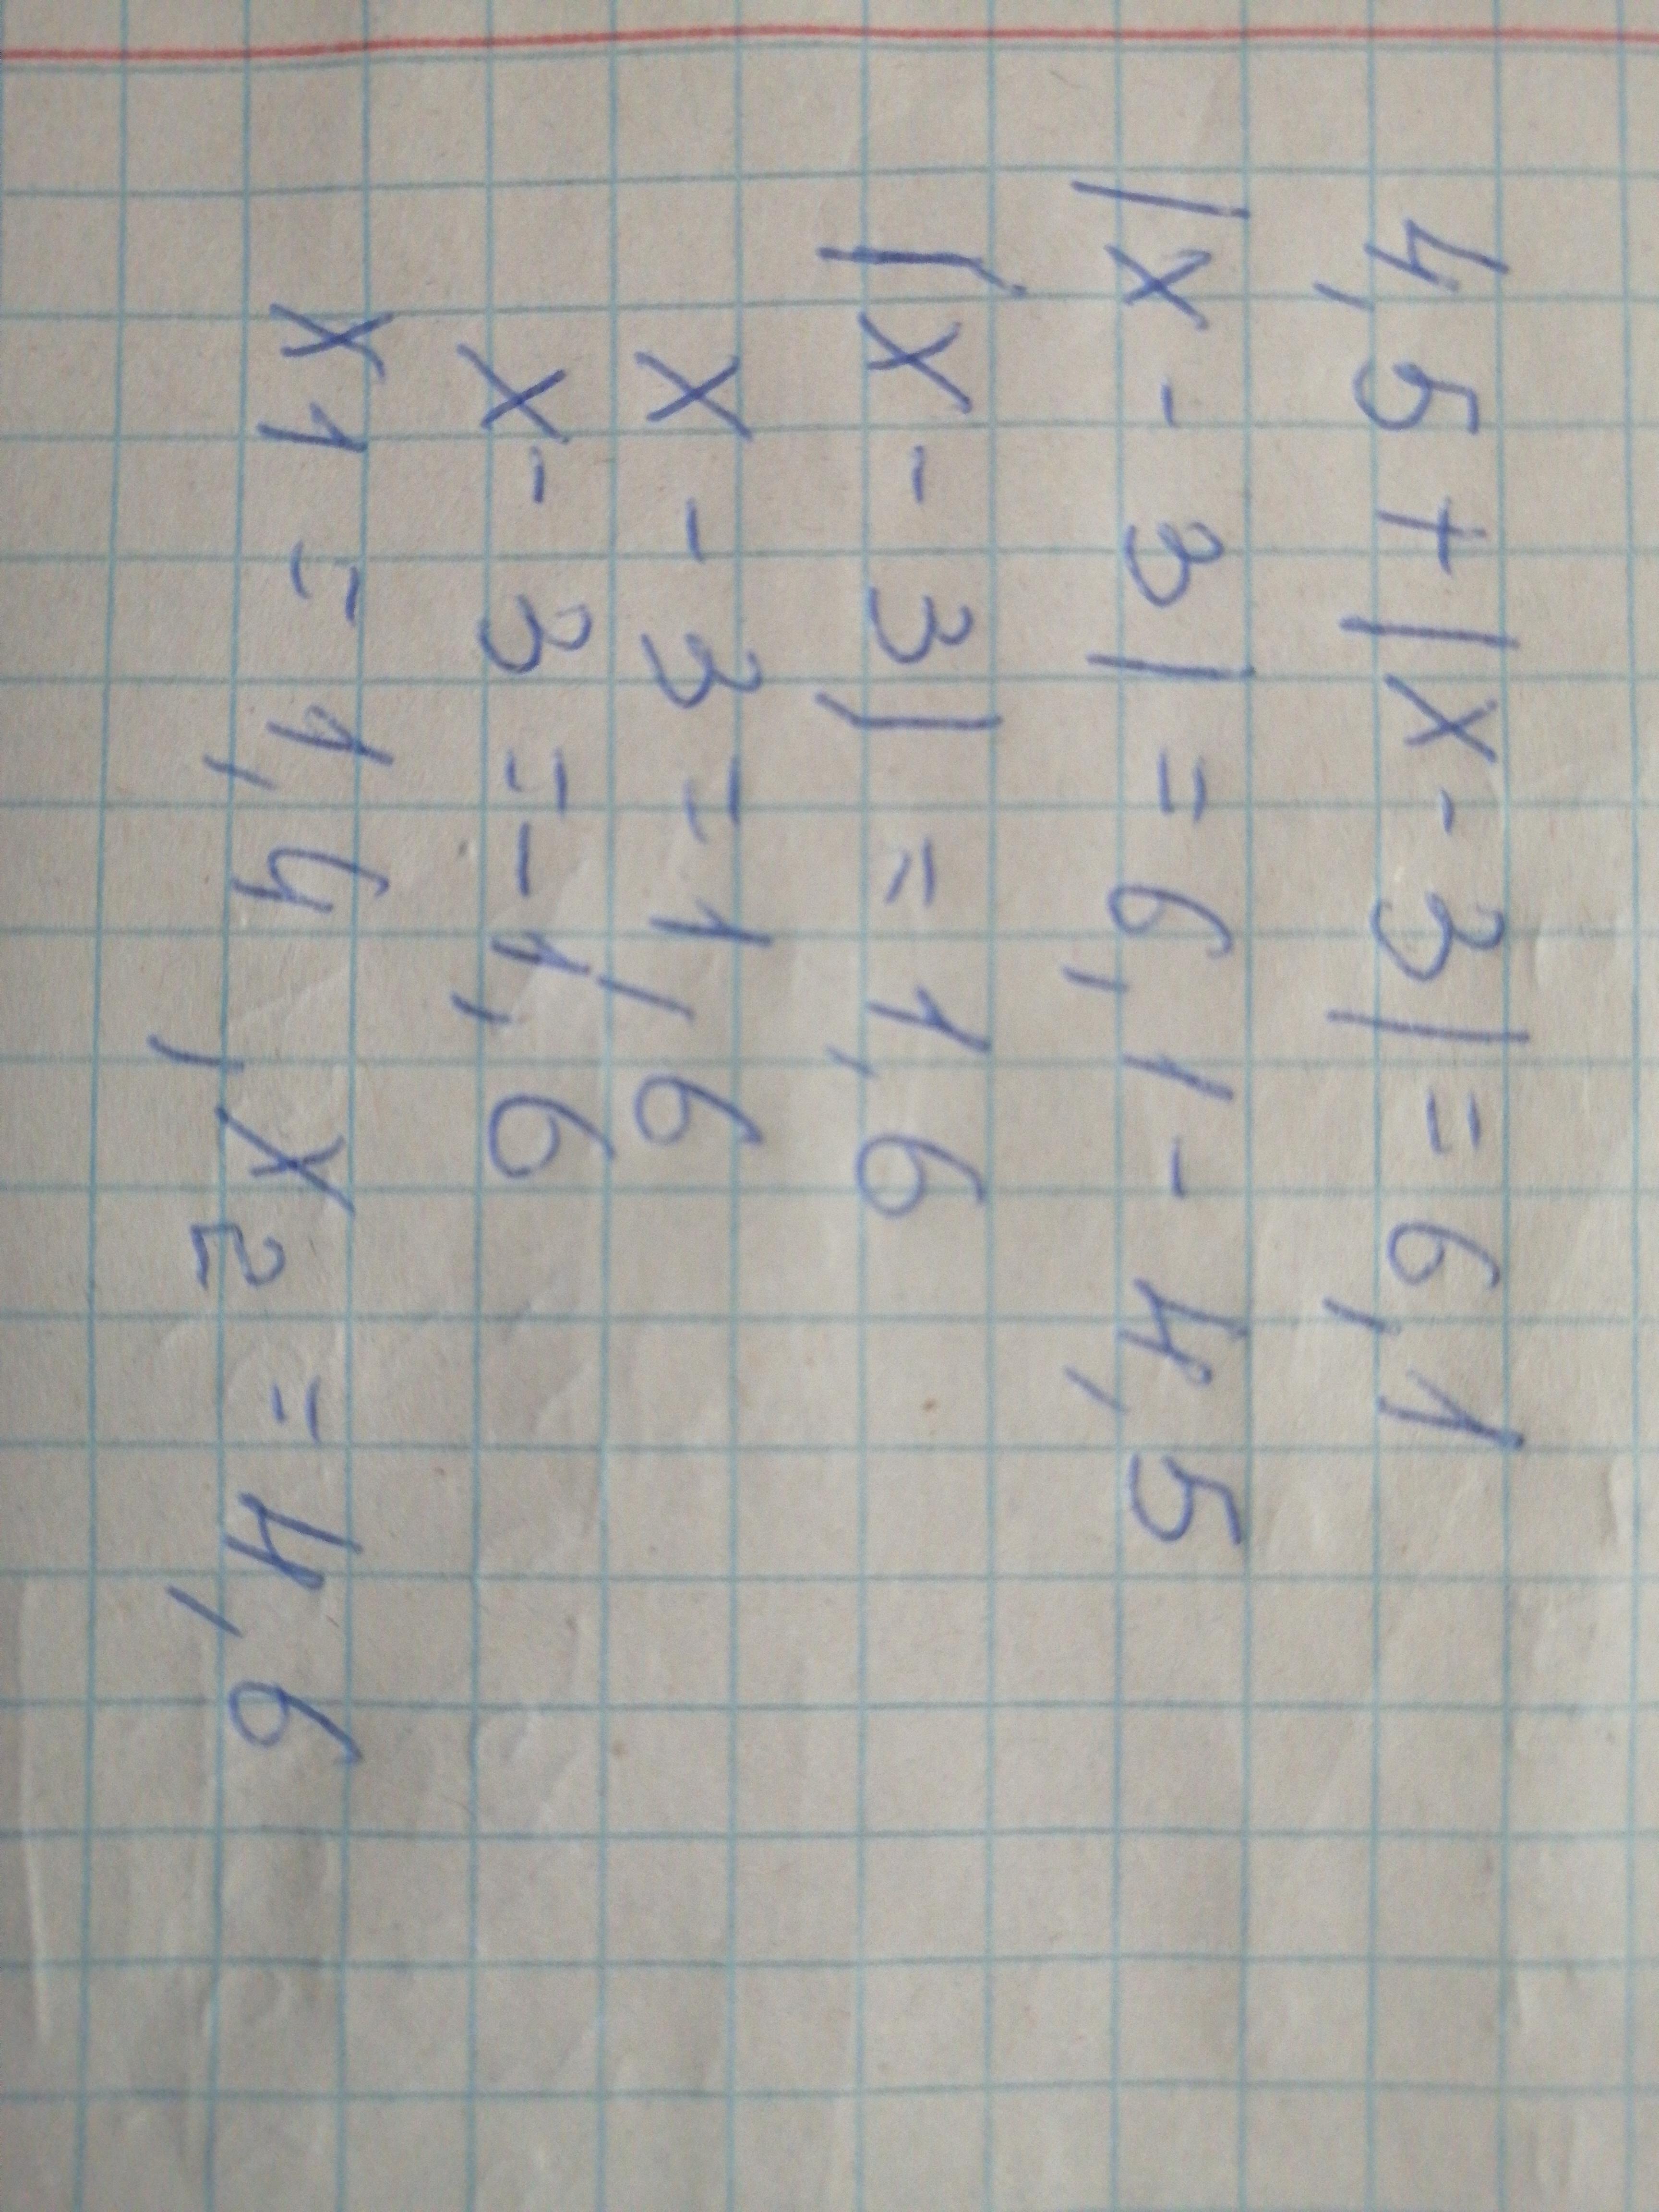 4,5 + |x - 3| = 6,1
|x - 3| = 6,1 - 4,5
|x - 3| = 1,6
x - 3 = 1,6
x - 3 = -1,6
x1 = 1,4 , x2 = 4,6